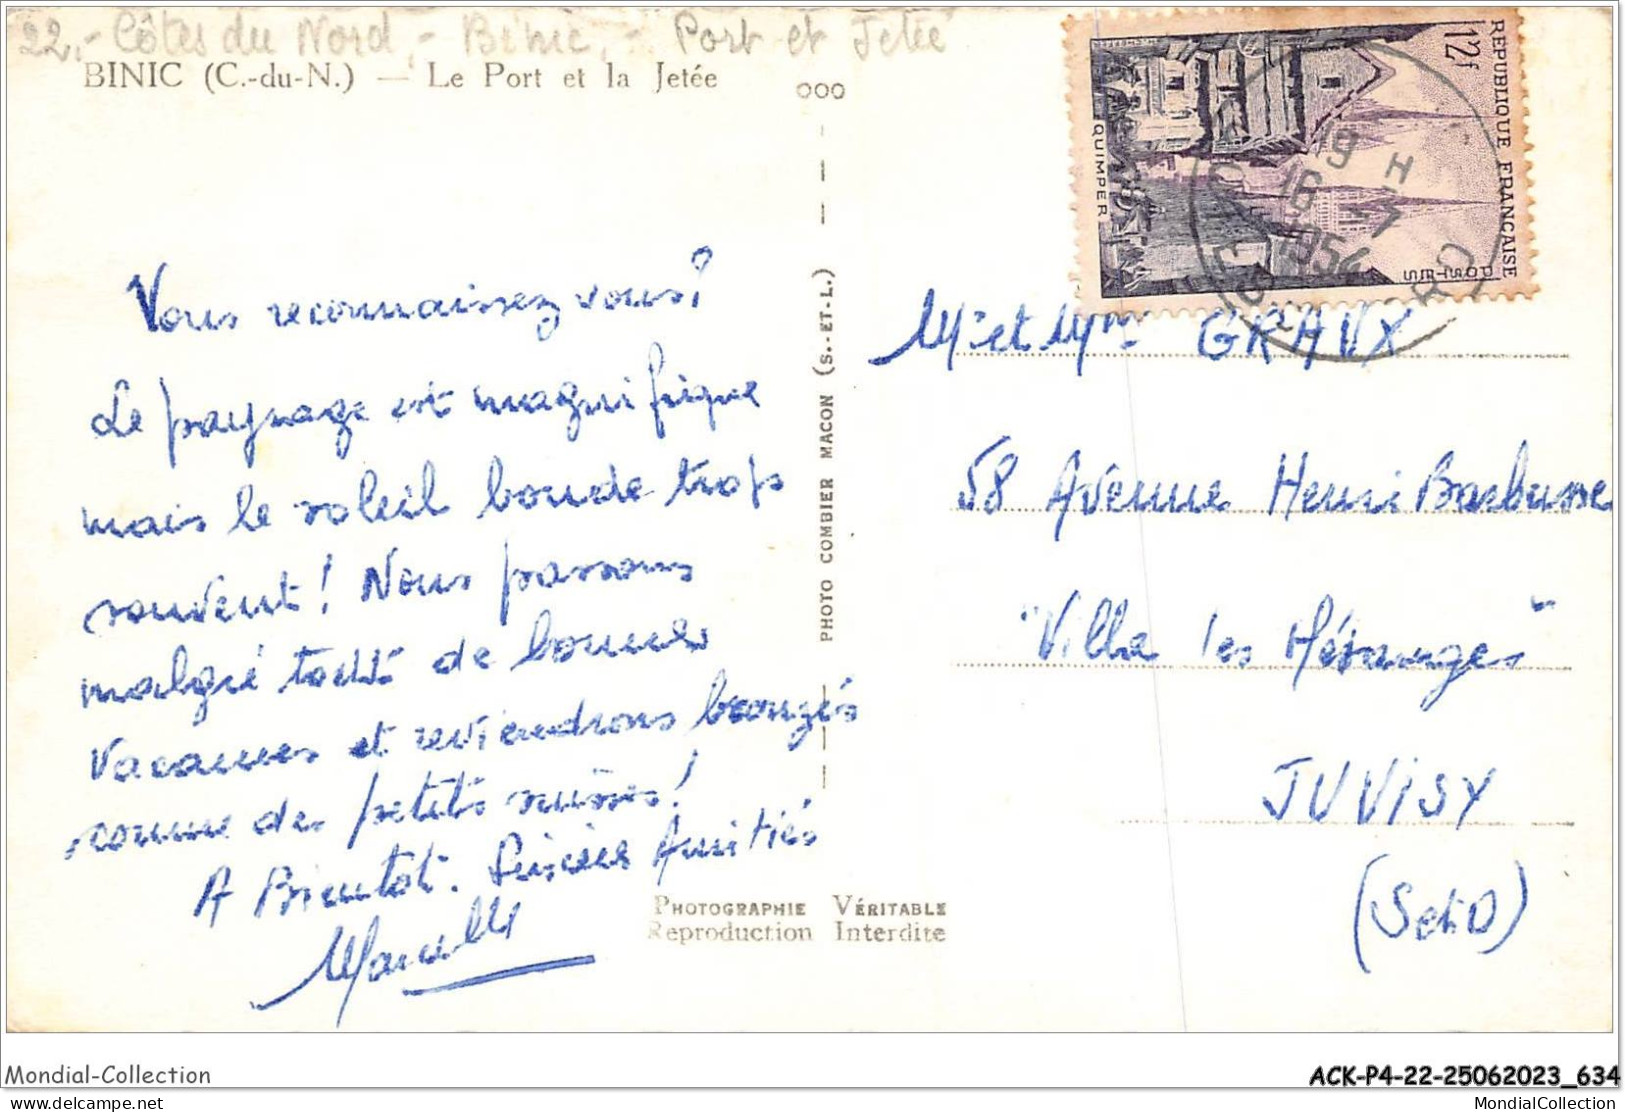 22.- Côtes du Nord.- Binic.- Port et Jetée
BINIC (C.-du-N.) — Le Port et la Jetée
Vous reconnaissez vous?
Le paysage est magnifique
mais le soleil boude trop
souvent! Nous passons
malgré tout de bonnes
vacances et reviendrons bronzés
comme des petits suisses!
A Bientôt. Sincères Amitiés
Marcelle
PHOTO COMBIER MACON (S.-ET-L.)
PHOTOGRAPHIE VÉRITABLE
Reproduction Interdite
000
REPUBLIQUE FRANÇAISE
12f
POSTES
QUIMPER
19 H
16 -7
1954
Mr et Mme GRAUX
58 Avenue Henri Barbusse
"Villa les Mésanges"
JUVISY
(S et O)
Mondial-Collection
ACK-P4-22-25062023_634
delcampe.net
MondialCollection